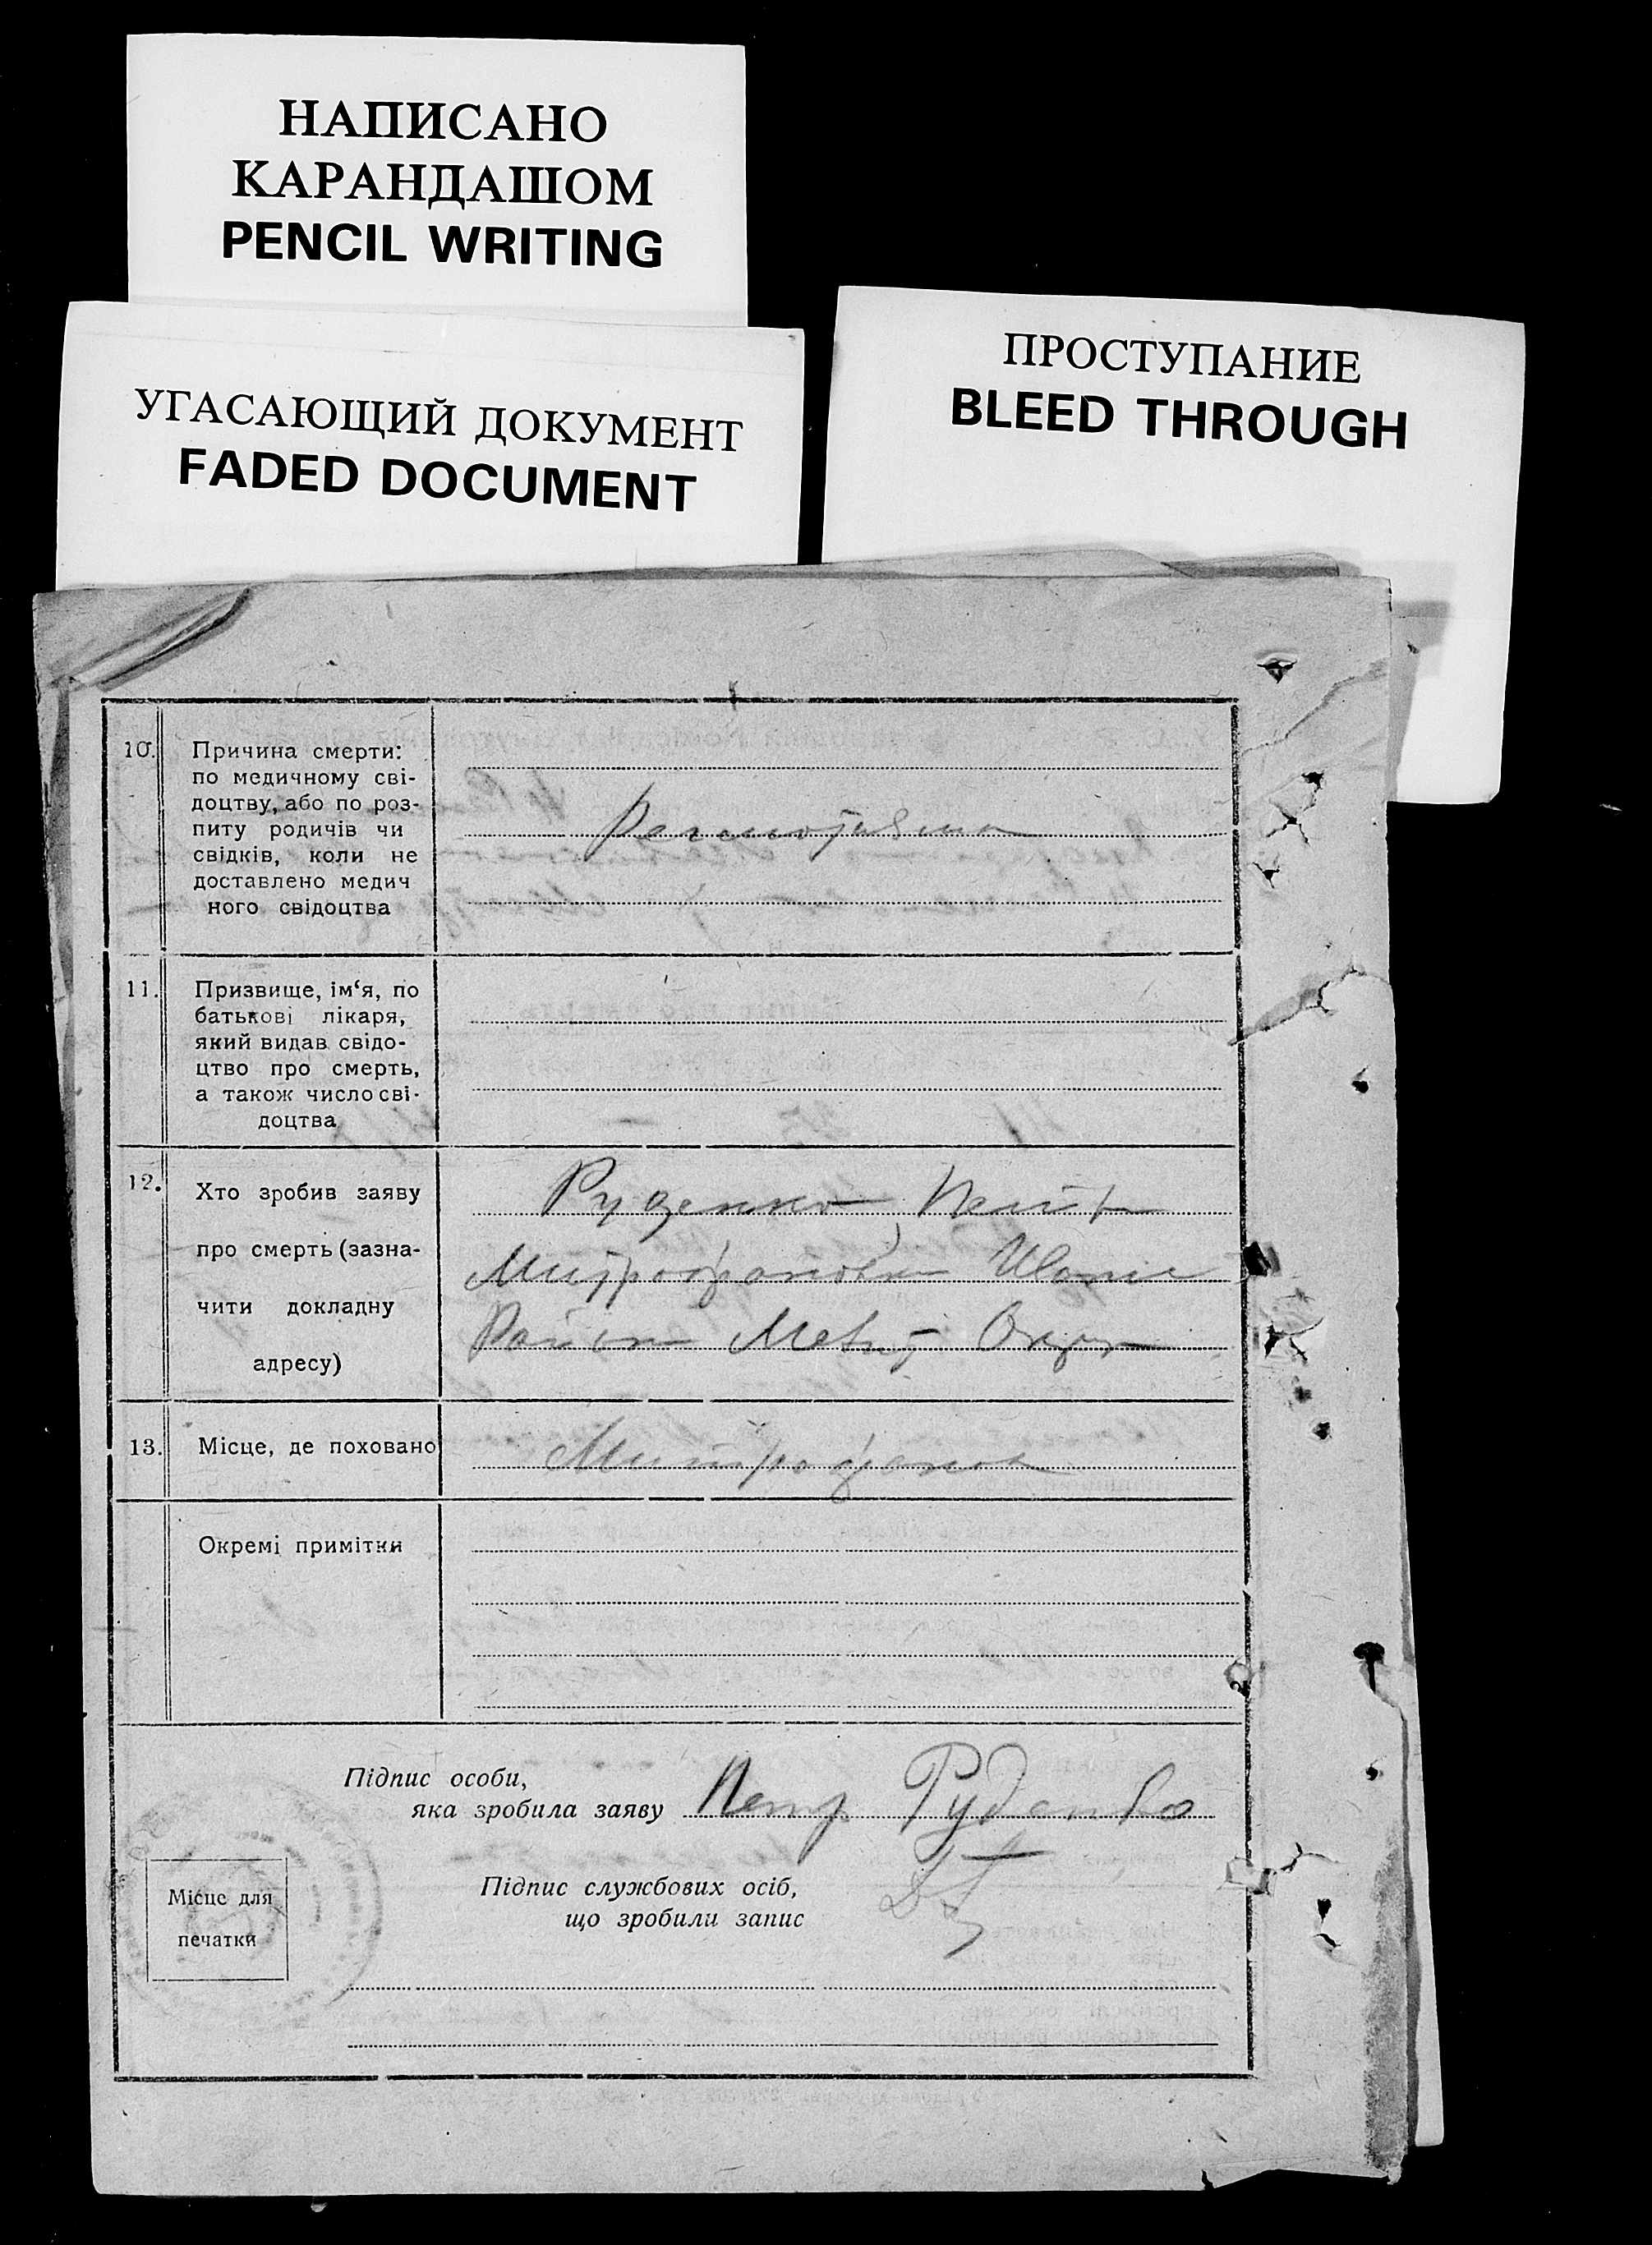 НАПИСАНО
КАРАНДАШОМ
PENCIL WRITING
УГАСАЮЩИЙ ДОКУМЕНТ
FADED DOCUMENT
ПРОСТУПАНИЕ
BLEED THROUGH
10.
Причина смерти:
по медичному сві-
доцтву, або по роз-
питу родичів чи
свідків, коли не
доставлено медич
ного свідоцтва
11.
Призвище, ім‘я, по
батькові лікаря,
який видав свідо-
цтво про смерть,
а також число сві-
доцтва
12.
Хто зробив заяву
про смерть (зазна-
чити докладну
адресу)
Руденко Петр
Митрофановка
Район Мелит Округ
13.
Місце, де поховано
Митрофанов
Окремі примітки
Підпис особи,
яка зробила заяву Петр Руденко
Підпис службових осіб,
що зробили запис
Місце для
печатки